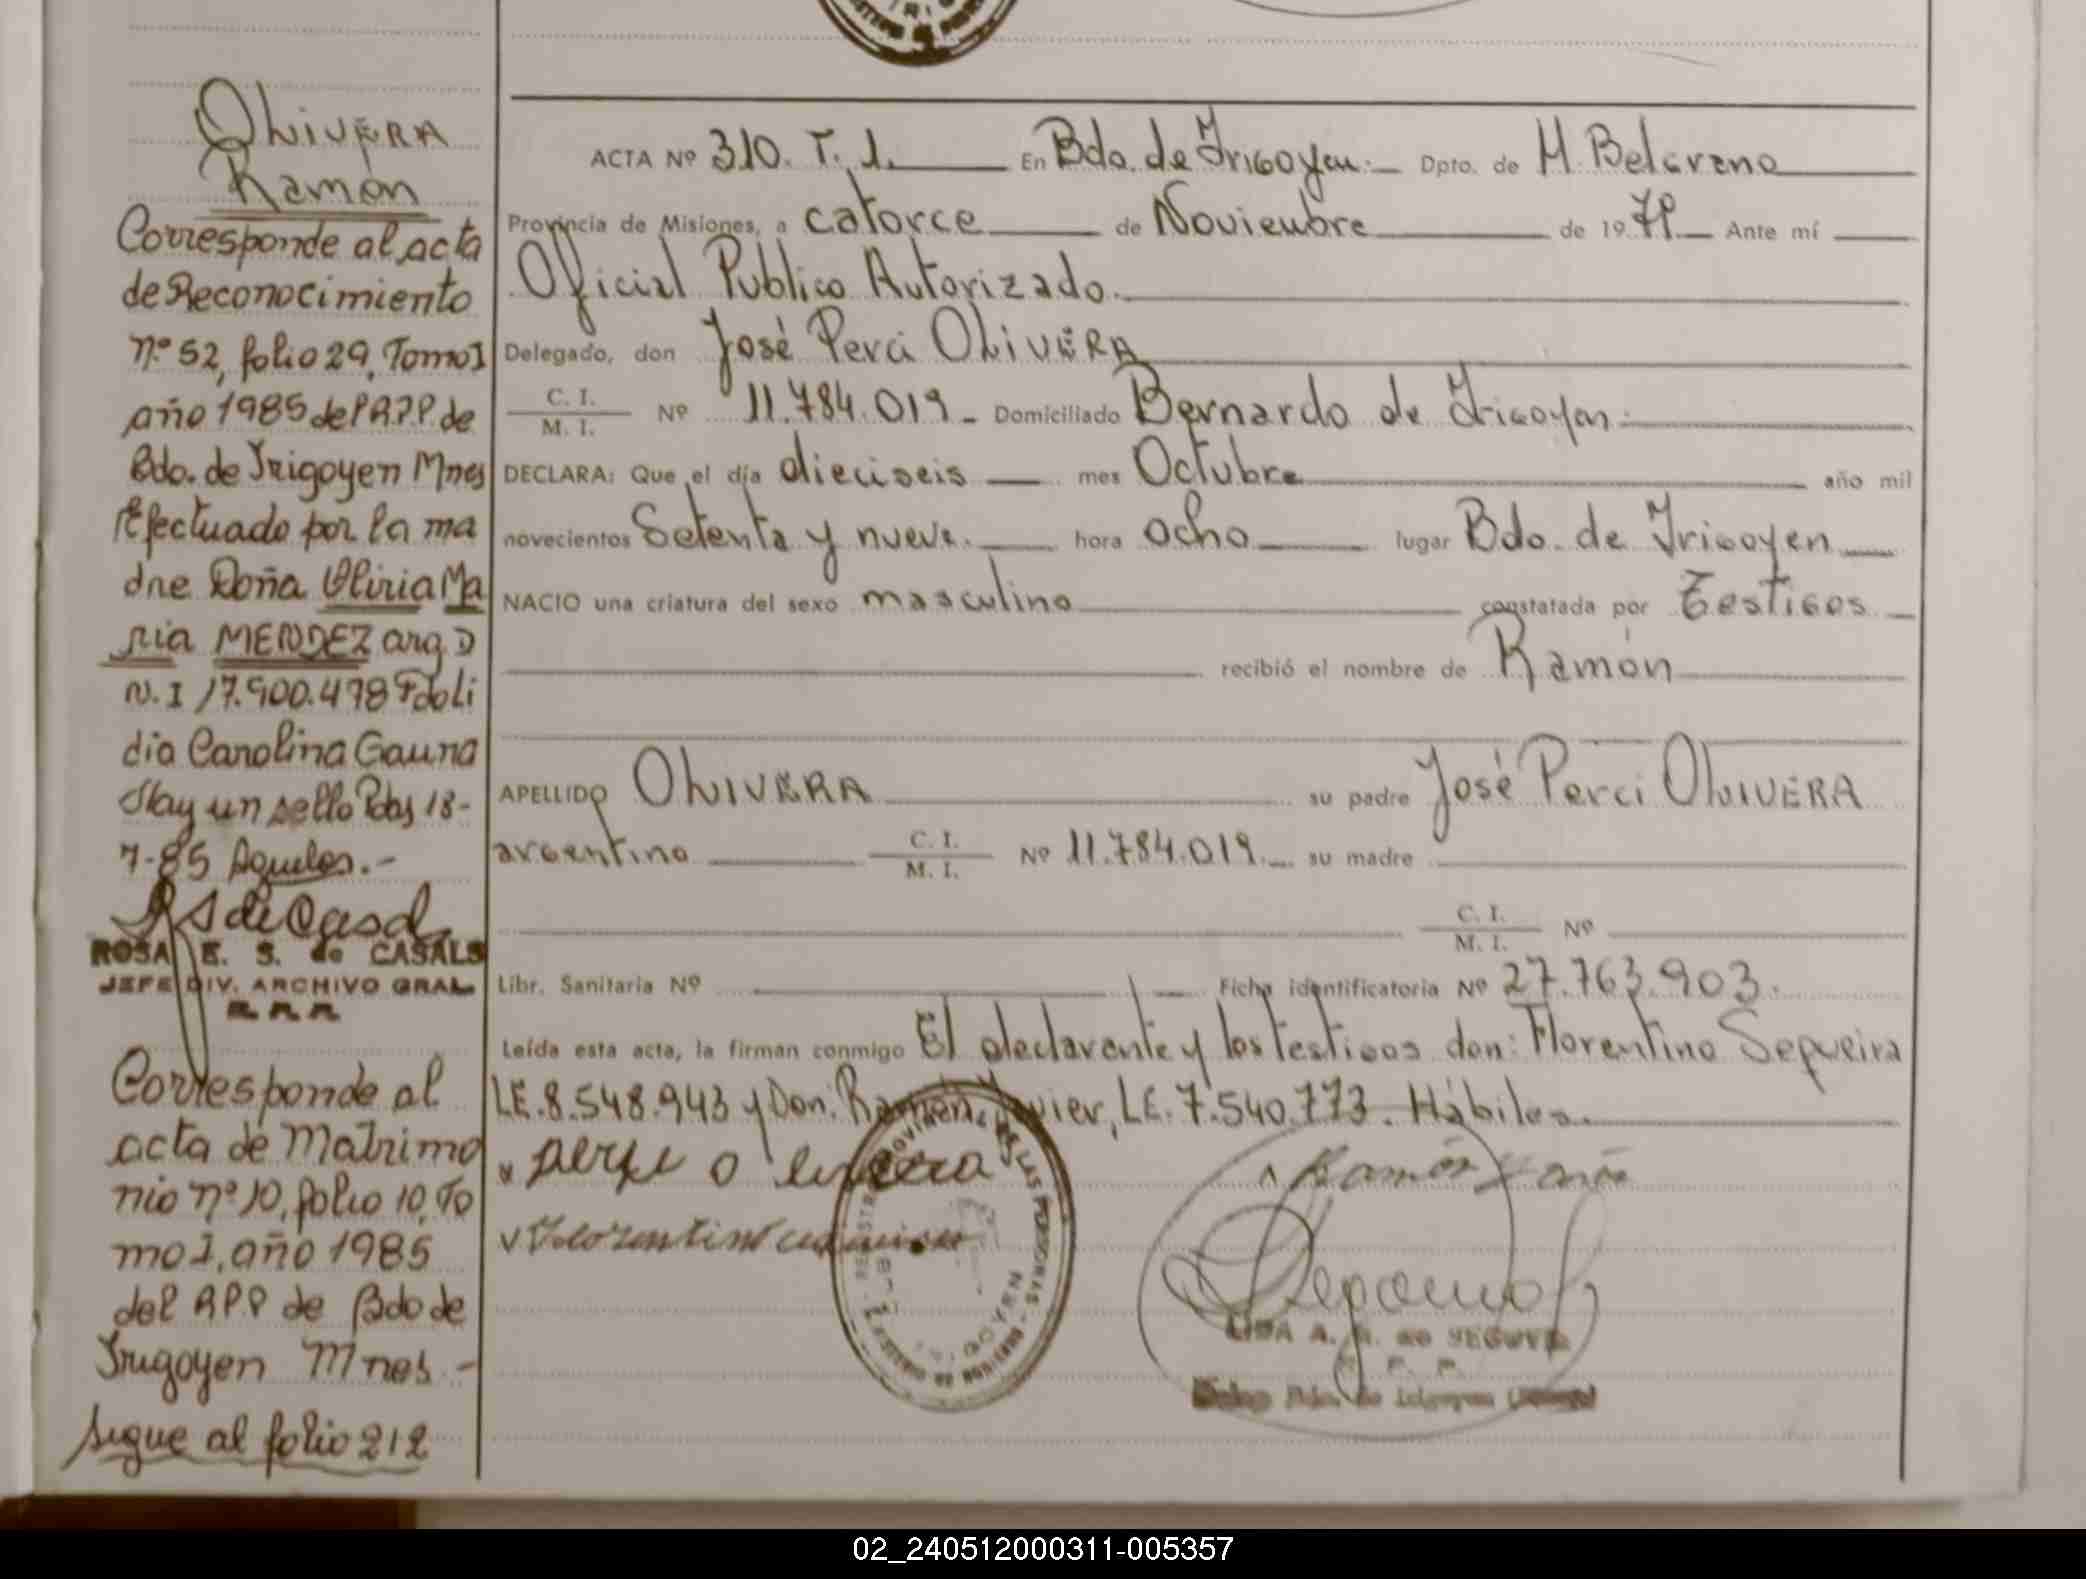 OLIVERA
Ramón
Corresponde al acta
de Reconocimiento
nº 52, folio 29, Tomo I
año 1985 del R.P.P. de
Bdo. de Irigoyen Mnes
Efectuado por la ma
dre Doña Oliria Ma
ria MENDEZ arg. D
N. I 17.900.478 Fdo li
dia Carolina Gauna
Hay un sello Pdas 18-
7-85
ROSA E. S. de CASALS
JEFE DIV. ARCHIVO GRAL
Corresponde al
acta de Matrimo
nio nº 10, folio 10, To
mo I, año 1985
del R.P.P de Bdo de
Irigoyen Mnes -
sigue al folio 212
ACTA Nº 310. T. 1. En Bdo. de Irigoyen. Dpto. de M. Belgrano
Provincia de Misiones, a catorce de Noviembre de 19 79 Ante mí
Oficial Publico Autorizado.
Delegado, don José Perci OLIVERA
C. I. M. I. Nº 11.784.019 Domiciliado Bernardo de Irigoyen.
DECLARA: Que el día dieciseis mes Octubre año mil
novecientos Setenta y nueve. hora ocho lugar Bdo. de Irigoyen
NACIO una criatura del sexo masculino constatada por testigos
recibió el nombre de Ramón
APELLIDO OLIVERA su padre José Perci OLIVERA
argentino C. I. M. I. Nº 11.784.019. su madre
C. I. M. I. Nº
Libr. Sanitaria Nº Ficha identificatoria Nº 27.763.903.
Leída esta acta, la firman conmigo El declarante y los testigos don: Florentino Sequeira
LE. 8.548.943 y Don. Ramón, LE. 7.540.773. Hábiles.
02_240512000311-005357